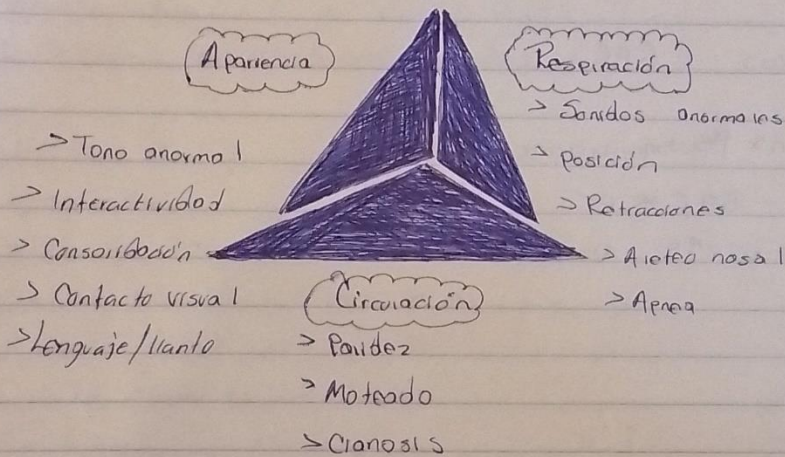 Apariencia
> Tono anormal
> Interactividad
> Consolidación
> Contacto visual
> Lenguaje/llanto
Respiración
> Sonidos anormales
> Posición
> Retracciones
> Aleteo nasal
> Apnea
Circulación
> Palidez
> Moteado
> Cianosis